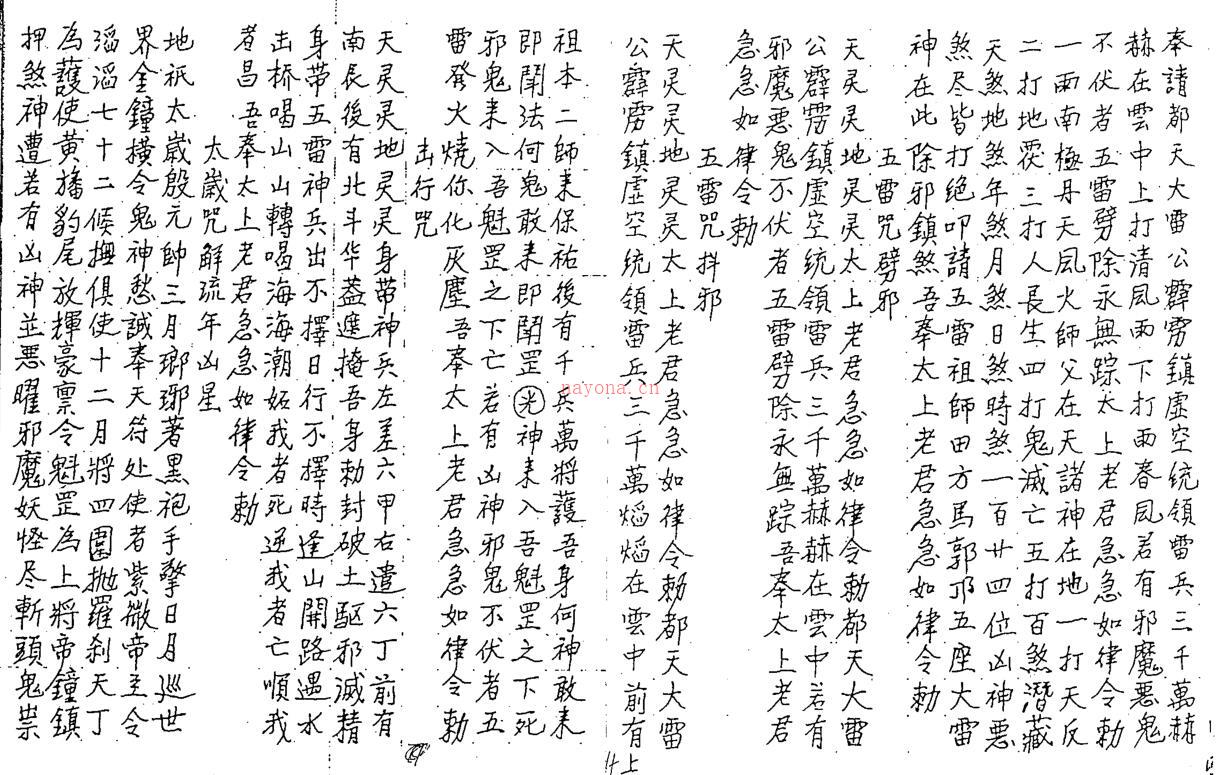 奉請都天大雷公霹雳鎮虛空统領雷兵三千萬赫
赫在雲中上打清風雨下打雨春風若有邪魔悪鬼
不伏者五雷劈除永無踪太上老君急急如律令勅
一两南極丹天風火師父在天諸神在地一打天反
二打地霊三打人長生四打鬼滅亡五打百煞潛藏
天煞地煞年煞月煞日煞時煞一百廿四位凶神悪
煞尽皆打絕叩請五雷祖師田方馬郭邓五座大雷
神在此除邪鎮煞吾奉太上老君急急如律令勅
五雷咒劈邪
天灵灵地灵灵太上老君急急如律令勅都天大雷
公霹雳鎮虛空统領雷兵三千萬赫赫在雲中若有
邪魔悪鬼不伏者五雷劈除永無踪吾奉太上老君
急急如律令勅
五雷咒抖邪
天灵灵地灵灵太上老君急急如律令勅都天大雷
公霹雳鎮虛空统領雷兵三千萬焰焰在雲中前有
祖本二師来保祐後有千兵萬將護吾身何神敢来
即鬧法何鬼敢来即鬧罡光神来入吾魁罡之下死
邪鬼来入吾魁罡之下亡若有凶神邪鬼不伏者五
雷發火燒你化灰塵吾奉太上老君急急如律令勅
击行咒
天灵灵地灵灵身带神兵左差六甲右遣六丁前有
南辰後有北斗华蓋遮掩吾身勅封破土駆邪滅精
身带五雷神兵出不擇日行不擇時逢山開路遇水
击桥喝山山轉喝海海潮妬我者死逆我者亡順我
者昌吾奉太上老君急急如律令勅
太歲咒解流年凶星
地祇太歲殷元帥三月瑯琊著黑袍手擎日月巡世
界金鐘橫令鬼神愁誠奉天符处使者紫微帝主令
滔滔七十二候撫俱使十二月將四圍抛羅刹天丁
為護使黃旛豹尾放揮豪禀令魁罡為上將帝鐘鎮
押煞神遭若有凶神並悪曜邪魔妖怪尽斬頭鬼祟
廾上
nayona.cn